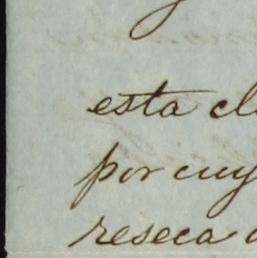 esta cl
por cuy
reseca